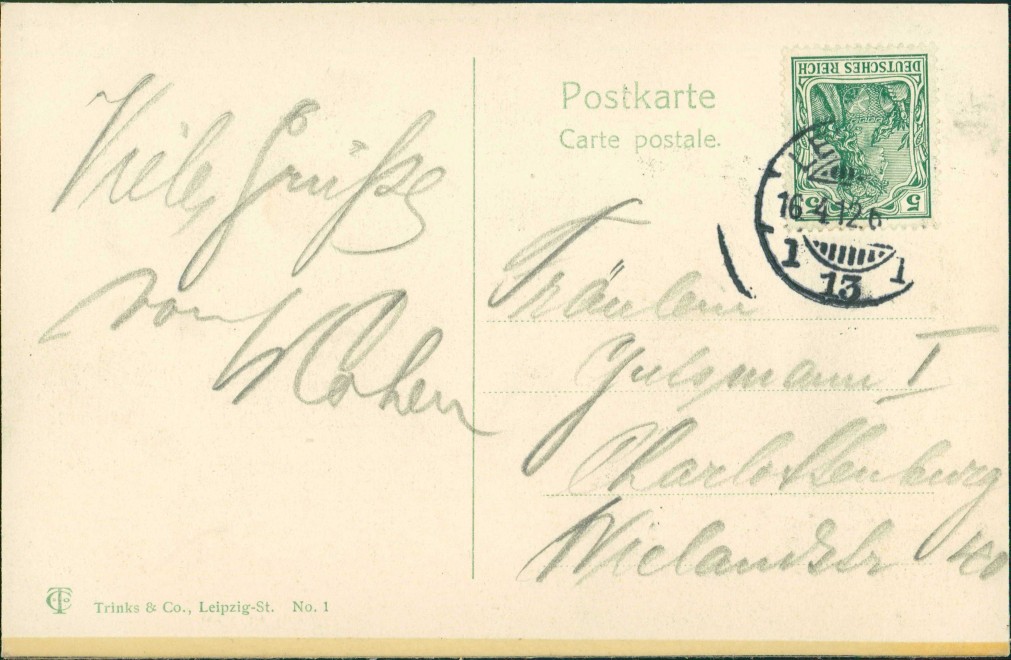 Viele Grüße
von
Postkarte
Carte postale.
DEUTSCHES REICH
5 5
16 4 12 6
1 13 1
Fräulein
I
Charlottenburg
Wielandstr 40
Trinks & Co., Leipzig-St. No. 1